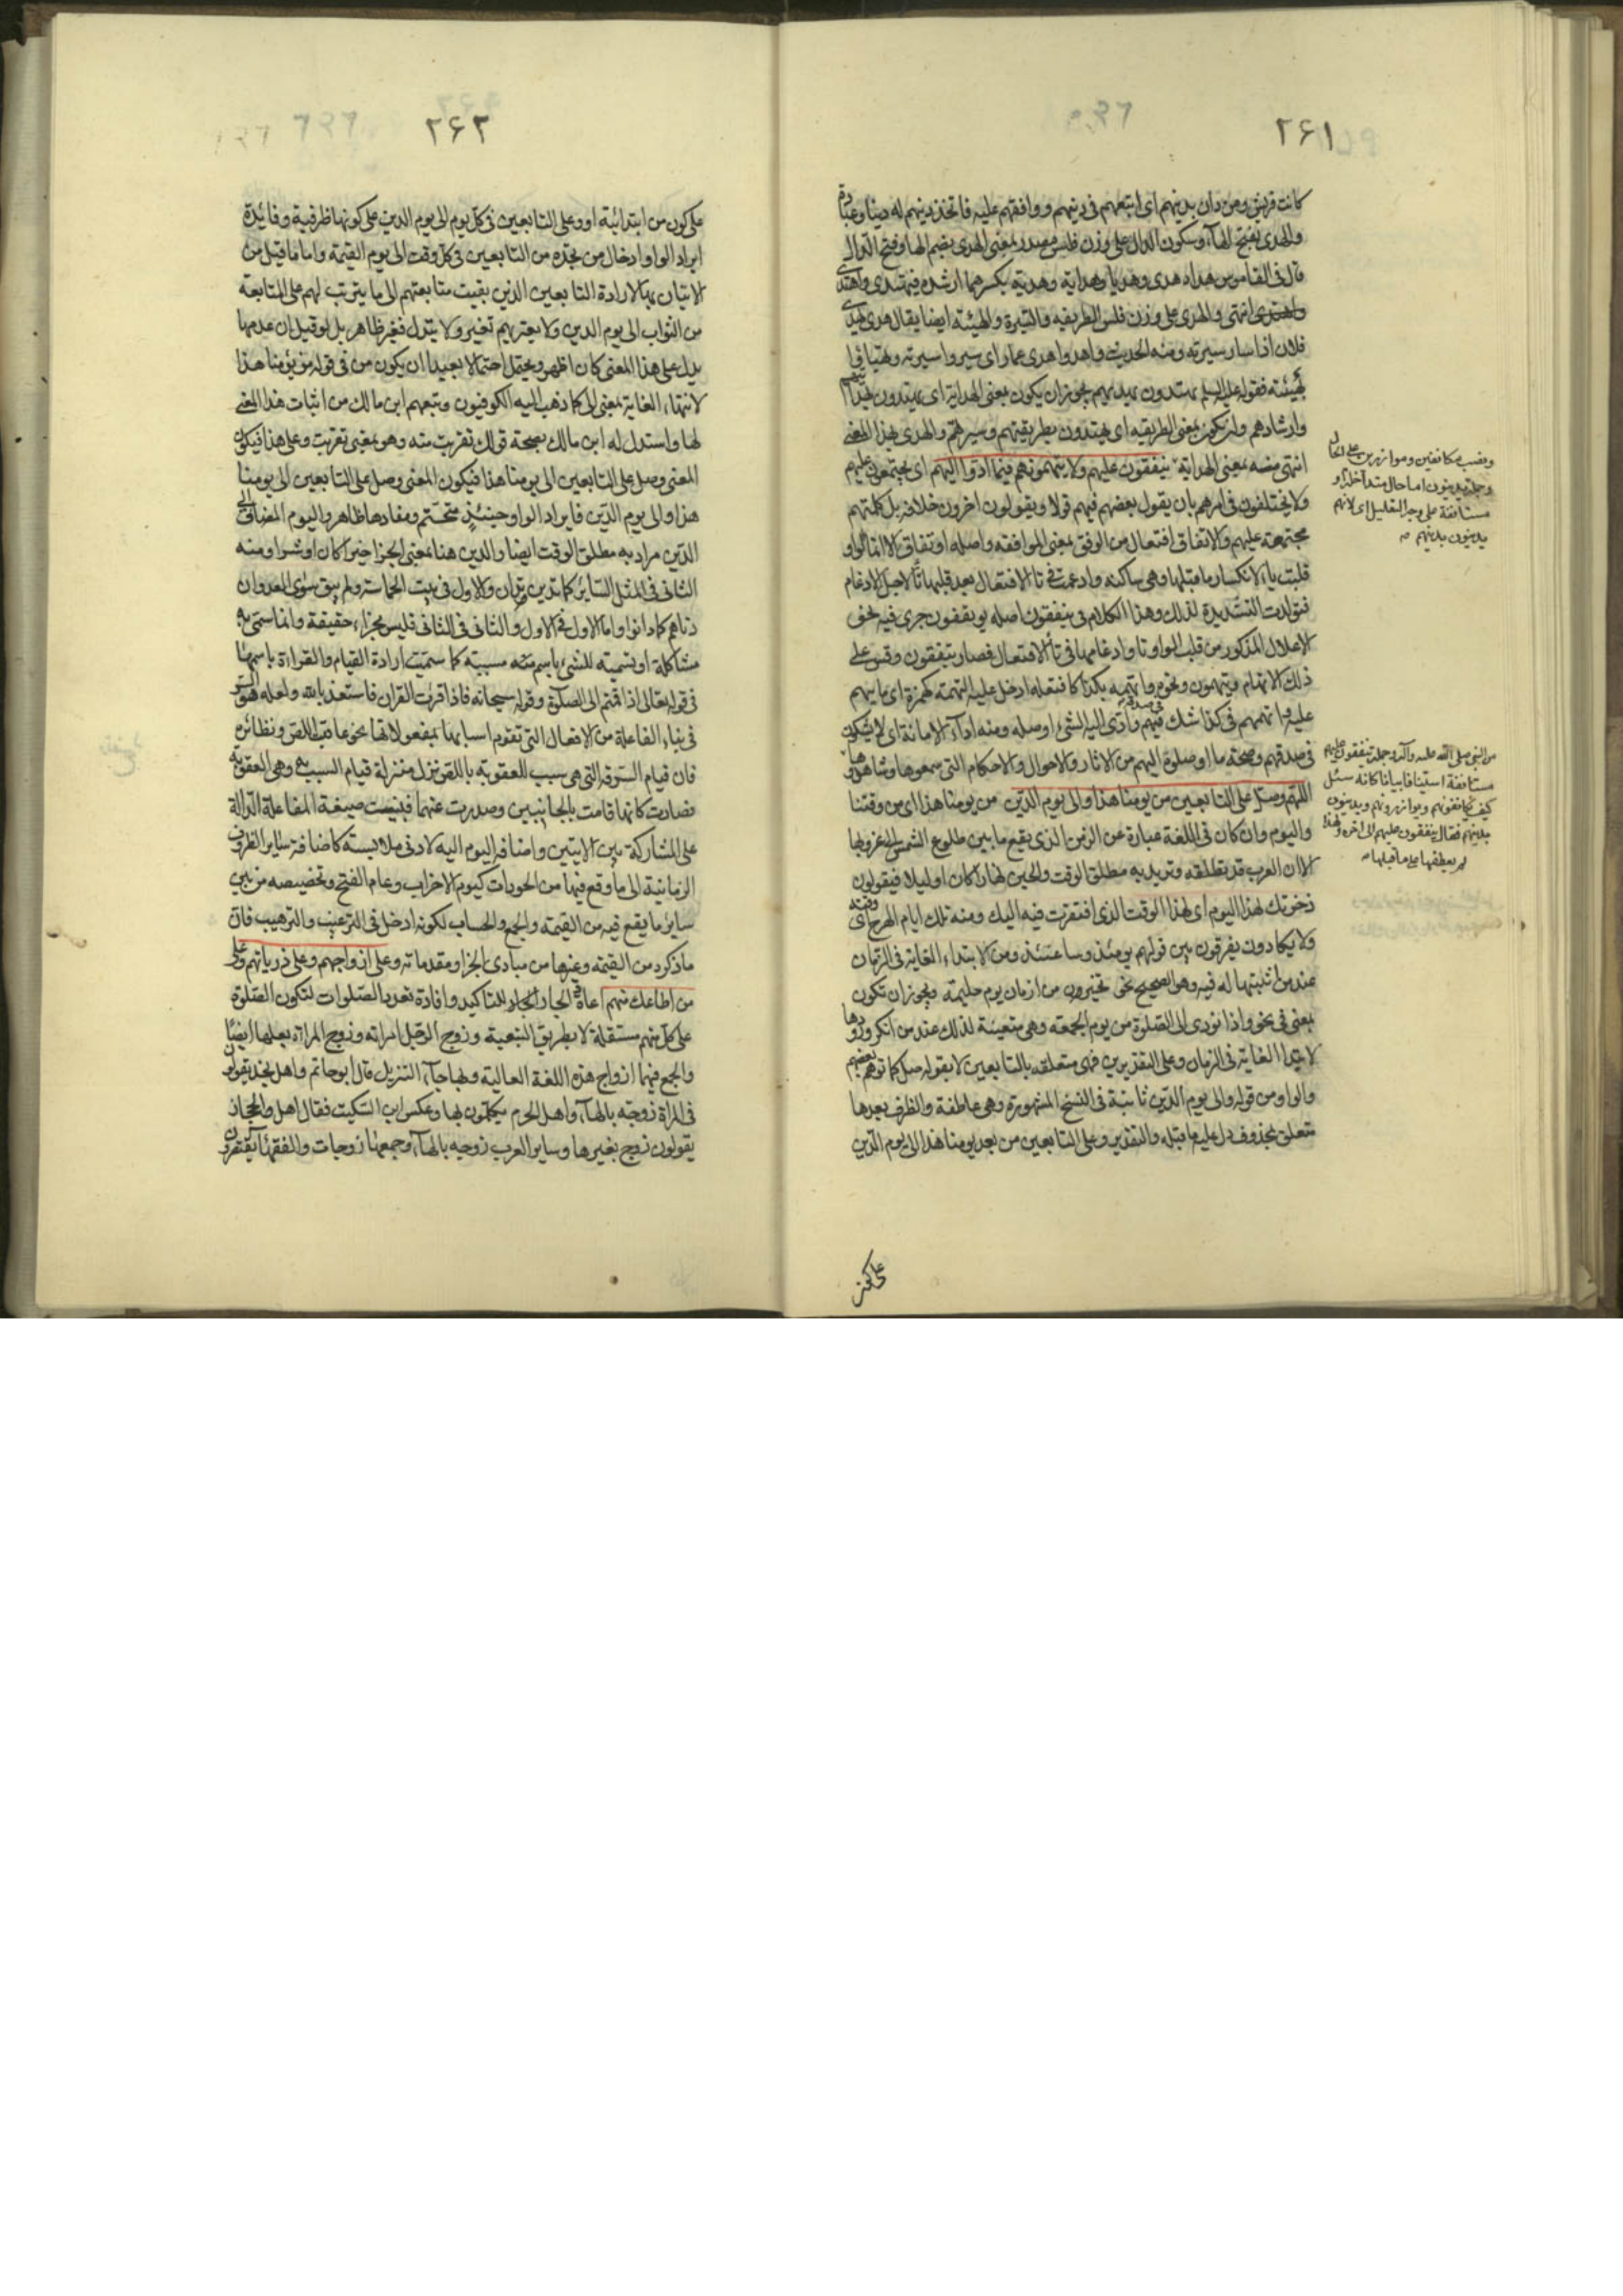 ٢۶١
كانت قريش ومن دان بدينهم اى اتبعهم فى دينهم ووافقهم عليه فاتخذ دينهم له دينا وعبادة
والهدى بفتح الهآء وسكون الدال على وزن فلس مصدر بمعنى الهدى بضم الها وفتح الدال
قال فى القاموس هداه هدى وهديا وهداية وهدية بكسرهما ارشده فهتدى واهتدى
انتهى والهدى على وزن فلس الطريقه والسيرة والهيئته ايضا يقال هدى هدى
فلان اذا سار سيرته ومنه الحديث واهدوا هدى عمار اى سيروا سيرته وتهيأوا
بهيئته فقوله عليه السلم يهتدون بهديهم يجوز ان يكون بمعنى الهداية اى يهتدون بهدايتهم
وارشادهم وان يكون بمعنى الطريقه اى يهتدون بطريقتهم وسيرتهم والهدى بهذا المعنى
انتهى منه بمعنى الهداية يتفقون عليهم ولا يتهمونهم فيما ادّوا اليهم اى يجتمعون عليهم
ولا يختلفون فى امرهم بان يقول بعضهم فيهم قولا ويقولون اخرون خلافه بل كلمتهم
مجتمعة عليهم والاتفاق افتعال من الوفق بمعنى الموافقه واصله اوتفاق الا ان الواو
قلبت ياء لانكسار ما قبلها وهى ساكنه وادغمت فى تا الافتعال بعد قلبها تآ لاجل الادغام
فتولدت التشديدة لذلك وهذا الكلام فى يتفقون اصله يوتفقون جرى فيه نحو
الاعلال المذكور من قلب الواو تا وادغامها فى تآ الافتعال فصار يتفقون وقس على
ذلك الاتهام ويتهمون ونحوه واتهمه بكذا كافتعله ادخل عليه التهمة كهمزة اى ما يتهم
عليه واتهمهم فى كذا شك فيهم فى صدقهم وادّى اليه الشىء اوصله ومنه اداء الامانة اى لا يشكون
فى صدقهم وصحة ما اوصلوه اليهم من الاثار والاحوال والاحكام التى سمعوها وشاهدوها
اللهم وصلّ على التابعين من يومنا هذا والى يوم الدّين من يومنا هذا اى من وقتنا
واليوم وان كان فى اللغة عبارة عن الزمن الذى يقع ما بين طلوع الشمس الى غروبها
الا ان العرب قد تطلقه وتريد به مطلق الوقت والحين نهارا كان او ليلا فيقولون
ذخرتك لهذا اليوم اى لهذا الوقت الذى افتقرت فيه اليك ومنه تلك ايام الهرج اى وقته
ولا يكادون يفرقون بين قولهم يومئذ وساعتئذ ومن لابتداء الغاية فى الزمان
عند من اثبتها له فيه وهو الصحيح نحو تخيرن من ازمان يوم حليمة ويجوز ان تكون
بمعنى فى نحو واذا نودى الى الصلوة من يوم الجمعه وهى متعينة لذلك عند من انكر ورودها
لابتدا الغاية فى الزمان وعلى التقديرين فهى متعلقه بالتابعين لا بقوله صل كما توهم بعضهم
والواو من قوله والى يوم الدّين ثابتة فى النسخ المشهورة وهى عاطفة والظرف بعدها
متعلق بمحذوف دل عليه ما قبله والتقدير وعلى التابعين من بعد يومنا هذا الى يوم الدّين
ونصب مكانفين وموازرين على الحال
وجملة يدينون اما حال متداخلة او
مستانفة على وجه التعليل اى لانهم
يدينون بدينهم
من النبى صلى الله عليه وآله وجملة يتفقون عليهم
مستانفة استينافا بيانيا كانه سئل
كيف يكانفونهم ويوازرونهم ويدينون
بدينهم فقال يتفقون عليهم الى اخره ولهذا
لم يعطفها على ما قبلها
على كون
٢۶٢
على كون من ابتدائية او وعلى التابعين فى كل يوم الى يوم الدين على كونها ظرفية وفائدة
ايراد الواو ادخال من تجدد من التابعين فى كل وقت الى يوم القيمة واما ما قيل من
الاتيان بها لارادة التابعين الذين بقيت متابعتهم الى ما يترتب لهم على المتابعة
من الثواب الى يوم الدين ولا يعتريهم تغير ولا يتبدل فغير ظاهر بل لو قيل ان عدمها
يدل على هذا المعنى كان اظهر ويحتمل احتمالا بعيدا ان يكون من فى قوله من يومنا هذا
لانتهاء الغاية بمعنى الى كما ذهب اليه الكوفيون وتبعهم ابن مالك من اثبات هذا المعنى
لها واستدل له ابن مالك بصحة قولك تقربت منه وهو بمعنى تقربت وعلى هذا فيكون
المعنى وصل على التابعين الى يومنا هذا فيكون المعنى وصل على التابعين الى يومنا
هذا والى يوم الدّين فايراد الواو حينئذ متحتم ومفادها ظاهر واليوم المضاف الى
الدّين مراد به مطلق الوقت ايضا والدين هنا بمعنى الجزا خيرا كان او شرا ومنه
الثانى فى المثل السائر كما تدين تدان والاول فى بيت الحماسة ولم يبق سوى العدوان
دناهم كما دانوا واما الاول فى الاول والثانى فى الثانى فليس بجزاء حقيقة وانما سمّى به
مشاكلة او تسمية للشىء باسم مسببه كما سميت ارادة القيام والقراءة باسمهما
فى قوله تعالى اذا قمتم الى الصلوة وقوله سبحانه فاذا قرئت القران فاستعذ بالله ولعله هو السر
فى بناء الفاعلة من الافعال التى تقوم اسبابها بمفعولاتها نحو عاقب اللص ونظائره
فان قيام السرقه التى هى سبب للعقوبة باللص نزل منزلة قيام المسبب وهى العقوبة
فصارت كانها قامت بالجانبين وصدرت عنهما فبنيت صيغة المفاعلة الدالة
على المشاركة بين الاثنين واضافه اليوم اليه لادنى ملابسة كاضافة ساير الظروف
الزمانية الى ما وقع فيها من الحوداث كيوم الاحزاب وعام الفتح وتخصيصه من بين
ساير ما يقع فيه من القيمة والجمع والحساب لكونه ادخل فى الترغيب والترهيب فان
ما ذكر من القيمة وغيرها من مبادى الجزا ومقدماته وعلى ازواجهم وعلى ذرياتهم وعلى
من اطاعك منهم اعادة الجار للتاكيد وافادة تعدد الصلوات لتكون الصلوة
على كل منهم مستقلة لا بطريق التبعية وزوج الرجل امراته وزوج المراة بعلها ايضا
والجمع فيهما ازواج هذه اللغة العالية وبها جآء التنزيل قال ابو حاتم واهل نجد يقولون
فى المراة زوجة بالهآء واهل الحرم يتكلمون بها وعكس ابن السكيت فقال اهل الحجاز
يقولون زوج بغيرها وساير العرب زوجه بالهآء وجمعها زوجات والفقهآ يقتصرون